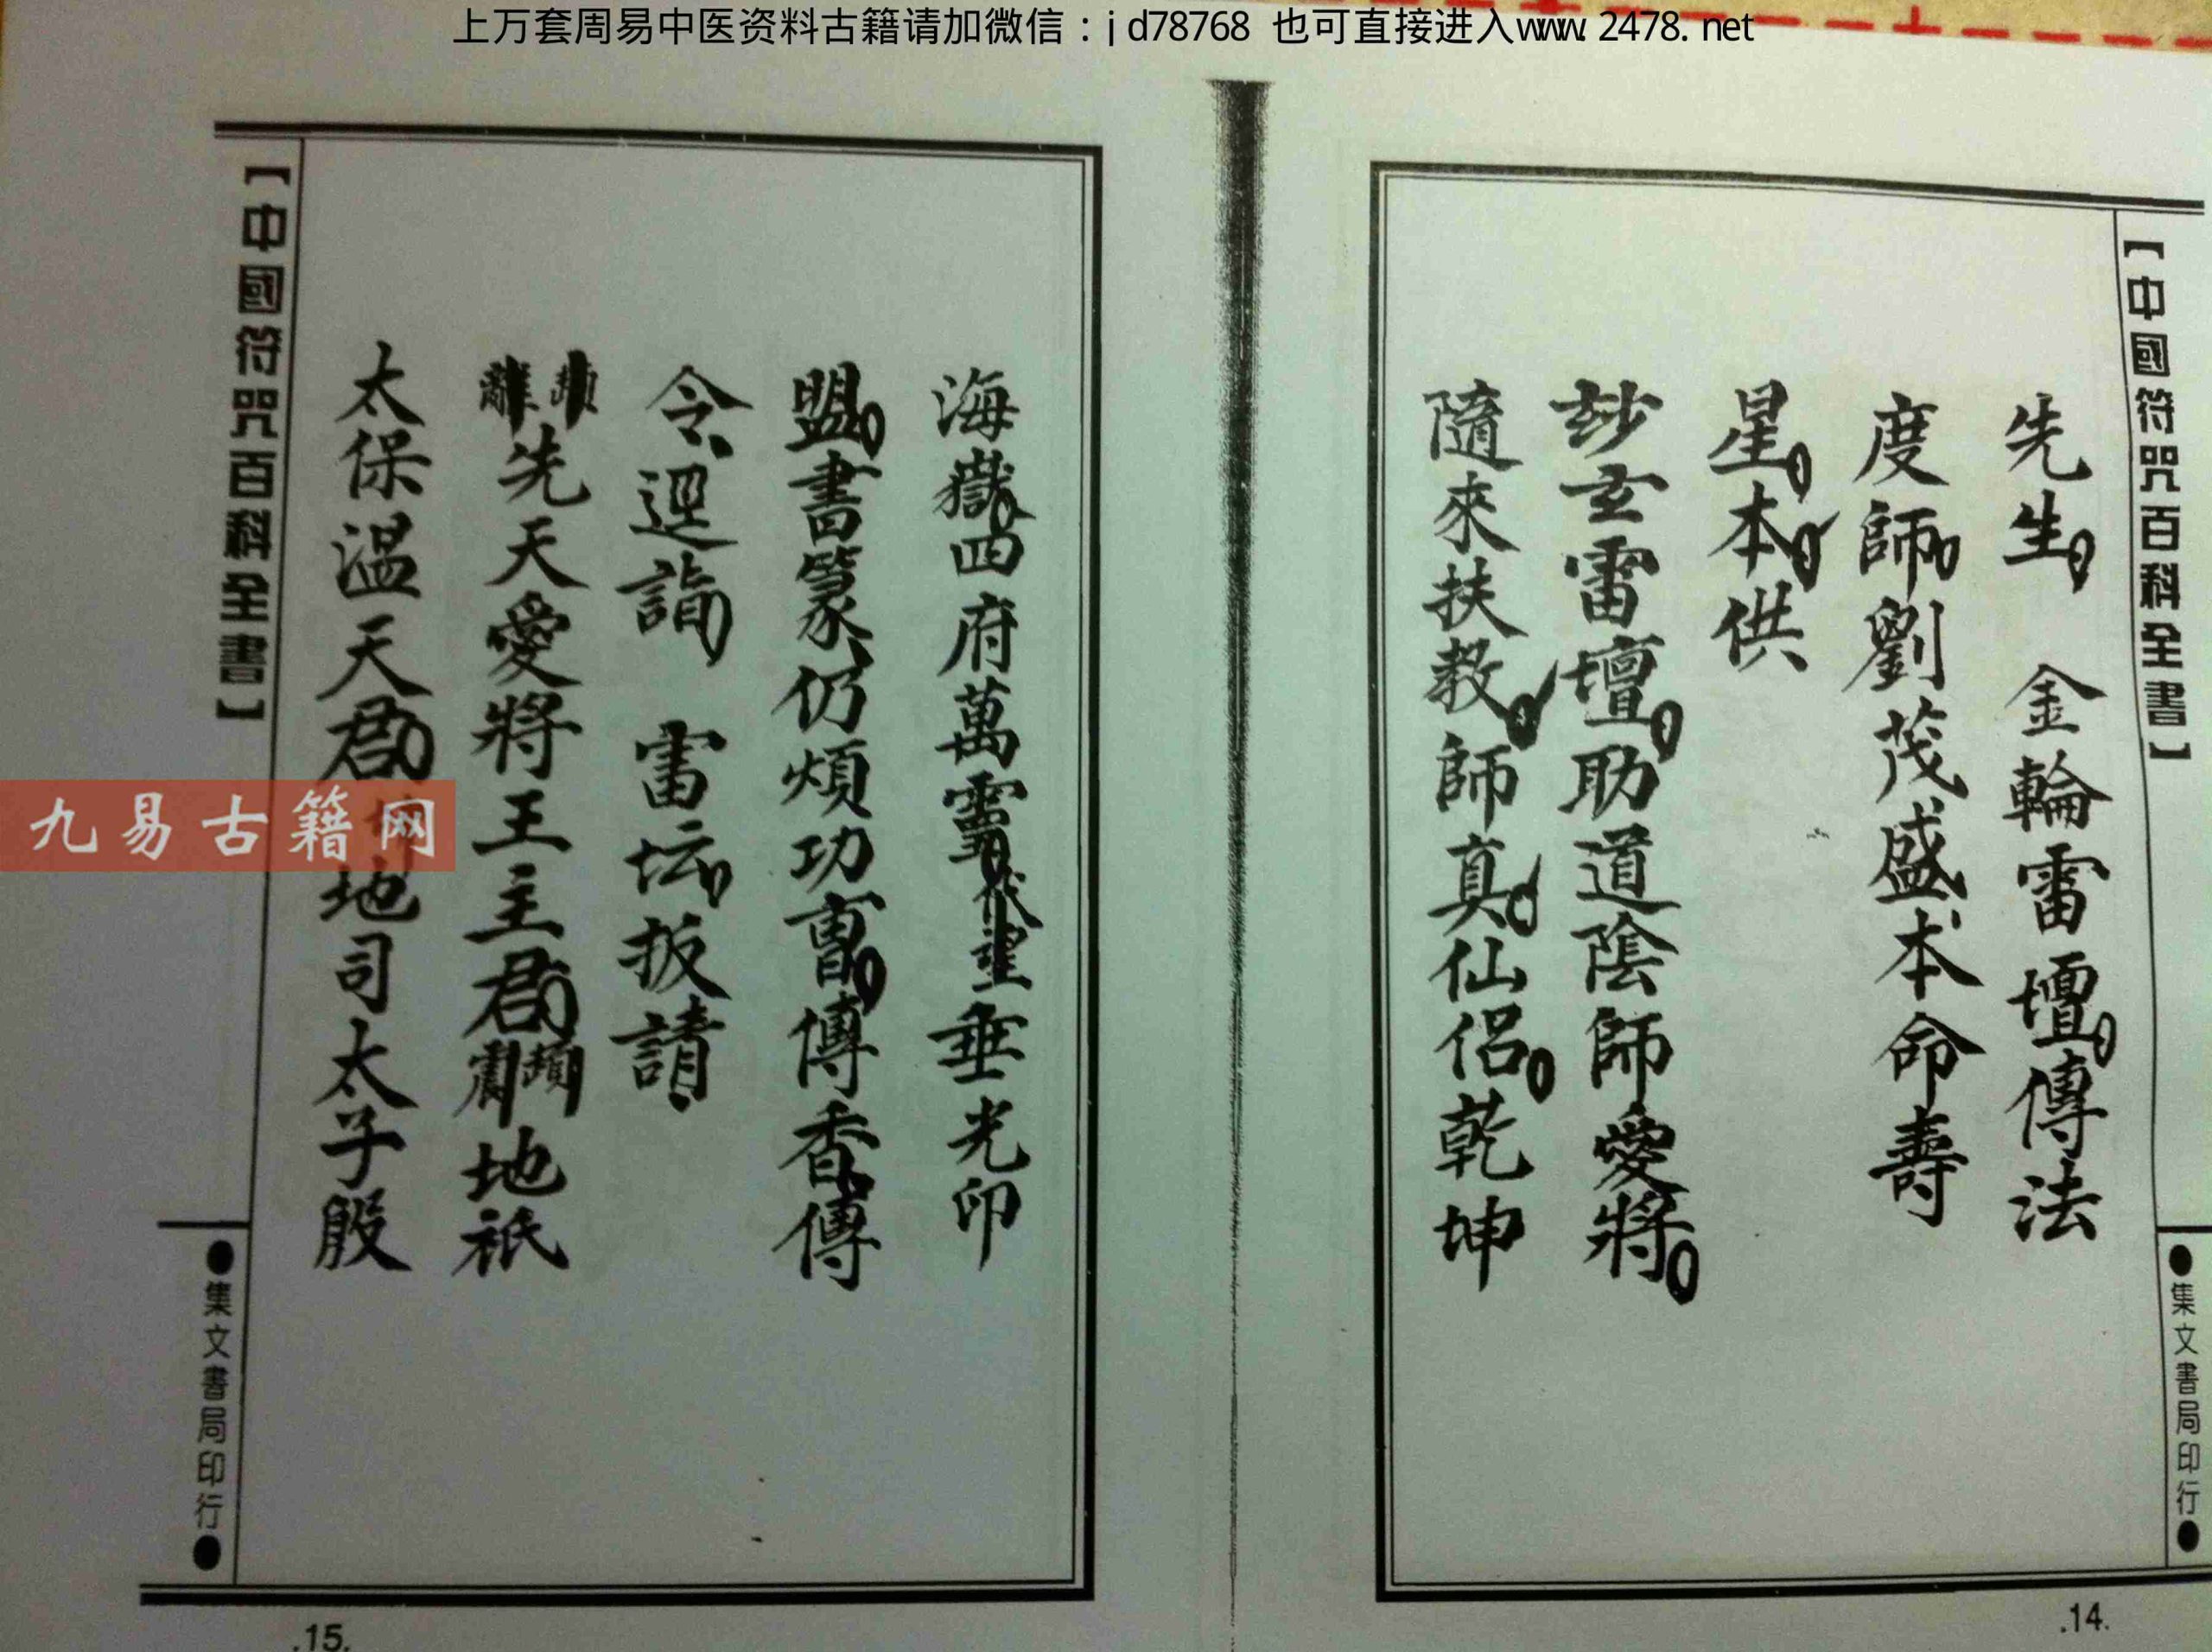 上万套周易中医资料古籍请加微信：jd78768 也可直接进入www.2478.net
【中國符咒百科全書】
●集文書局印行●
先生 金輪雷壇傳法
度師劉茂盛本命壽
星本供
玅玄雷壇助道陰師愛將
隨來扶教師真仙侶乾坤
.14.
海嶽四府萬靈代望垂光印
盟書篆仍煩功曹傳香傳
令迎詣 雷坛扳請
先天愛將王主君地祇
太保溫天君地司太子殷
【中國符咒百科全書】
●集文書局印行●
.15.
九易古籍网